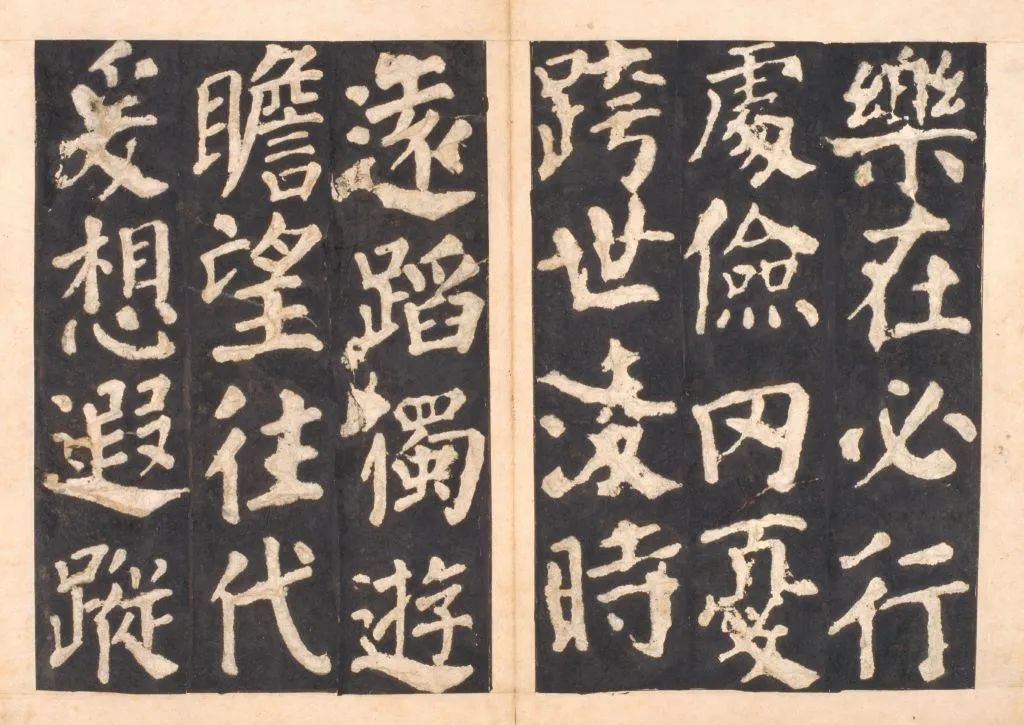 樂在必行
處儉罔憂
跨世凌時
遠蹈獨遊
瞻望往代
爰想遐蹤